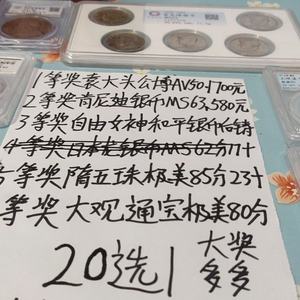 1等奖袁大头公博AV50 1700元
2等奖肯尼迪银币MS63,580元
3等奖自由女神和平银币后铸
4等奖日本龙银币MS62分
等奖隋五珠极美85分23
等奖大观通宝极美80分
20选1
大奖
多多